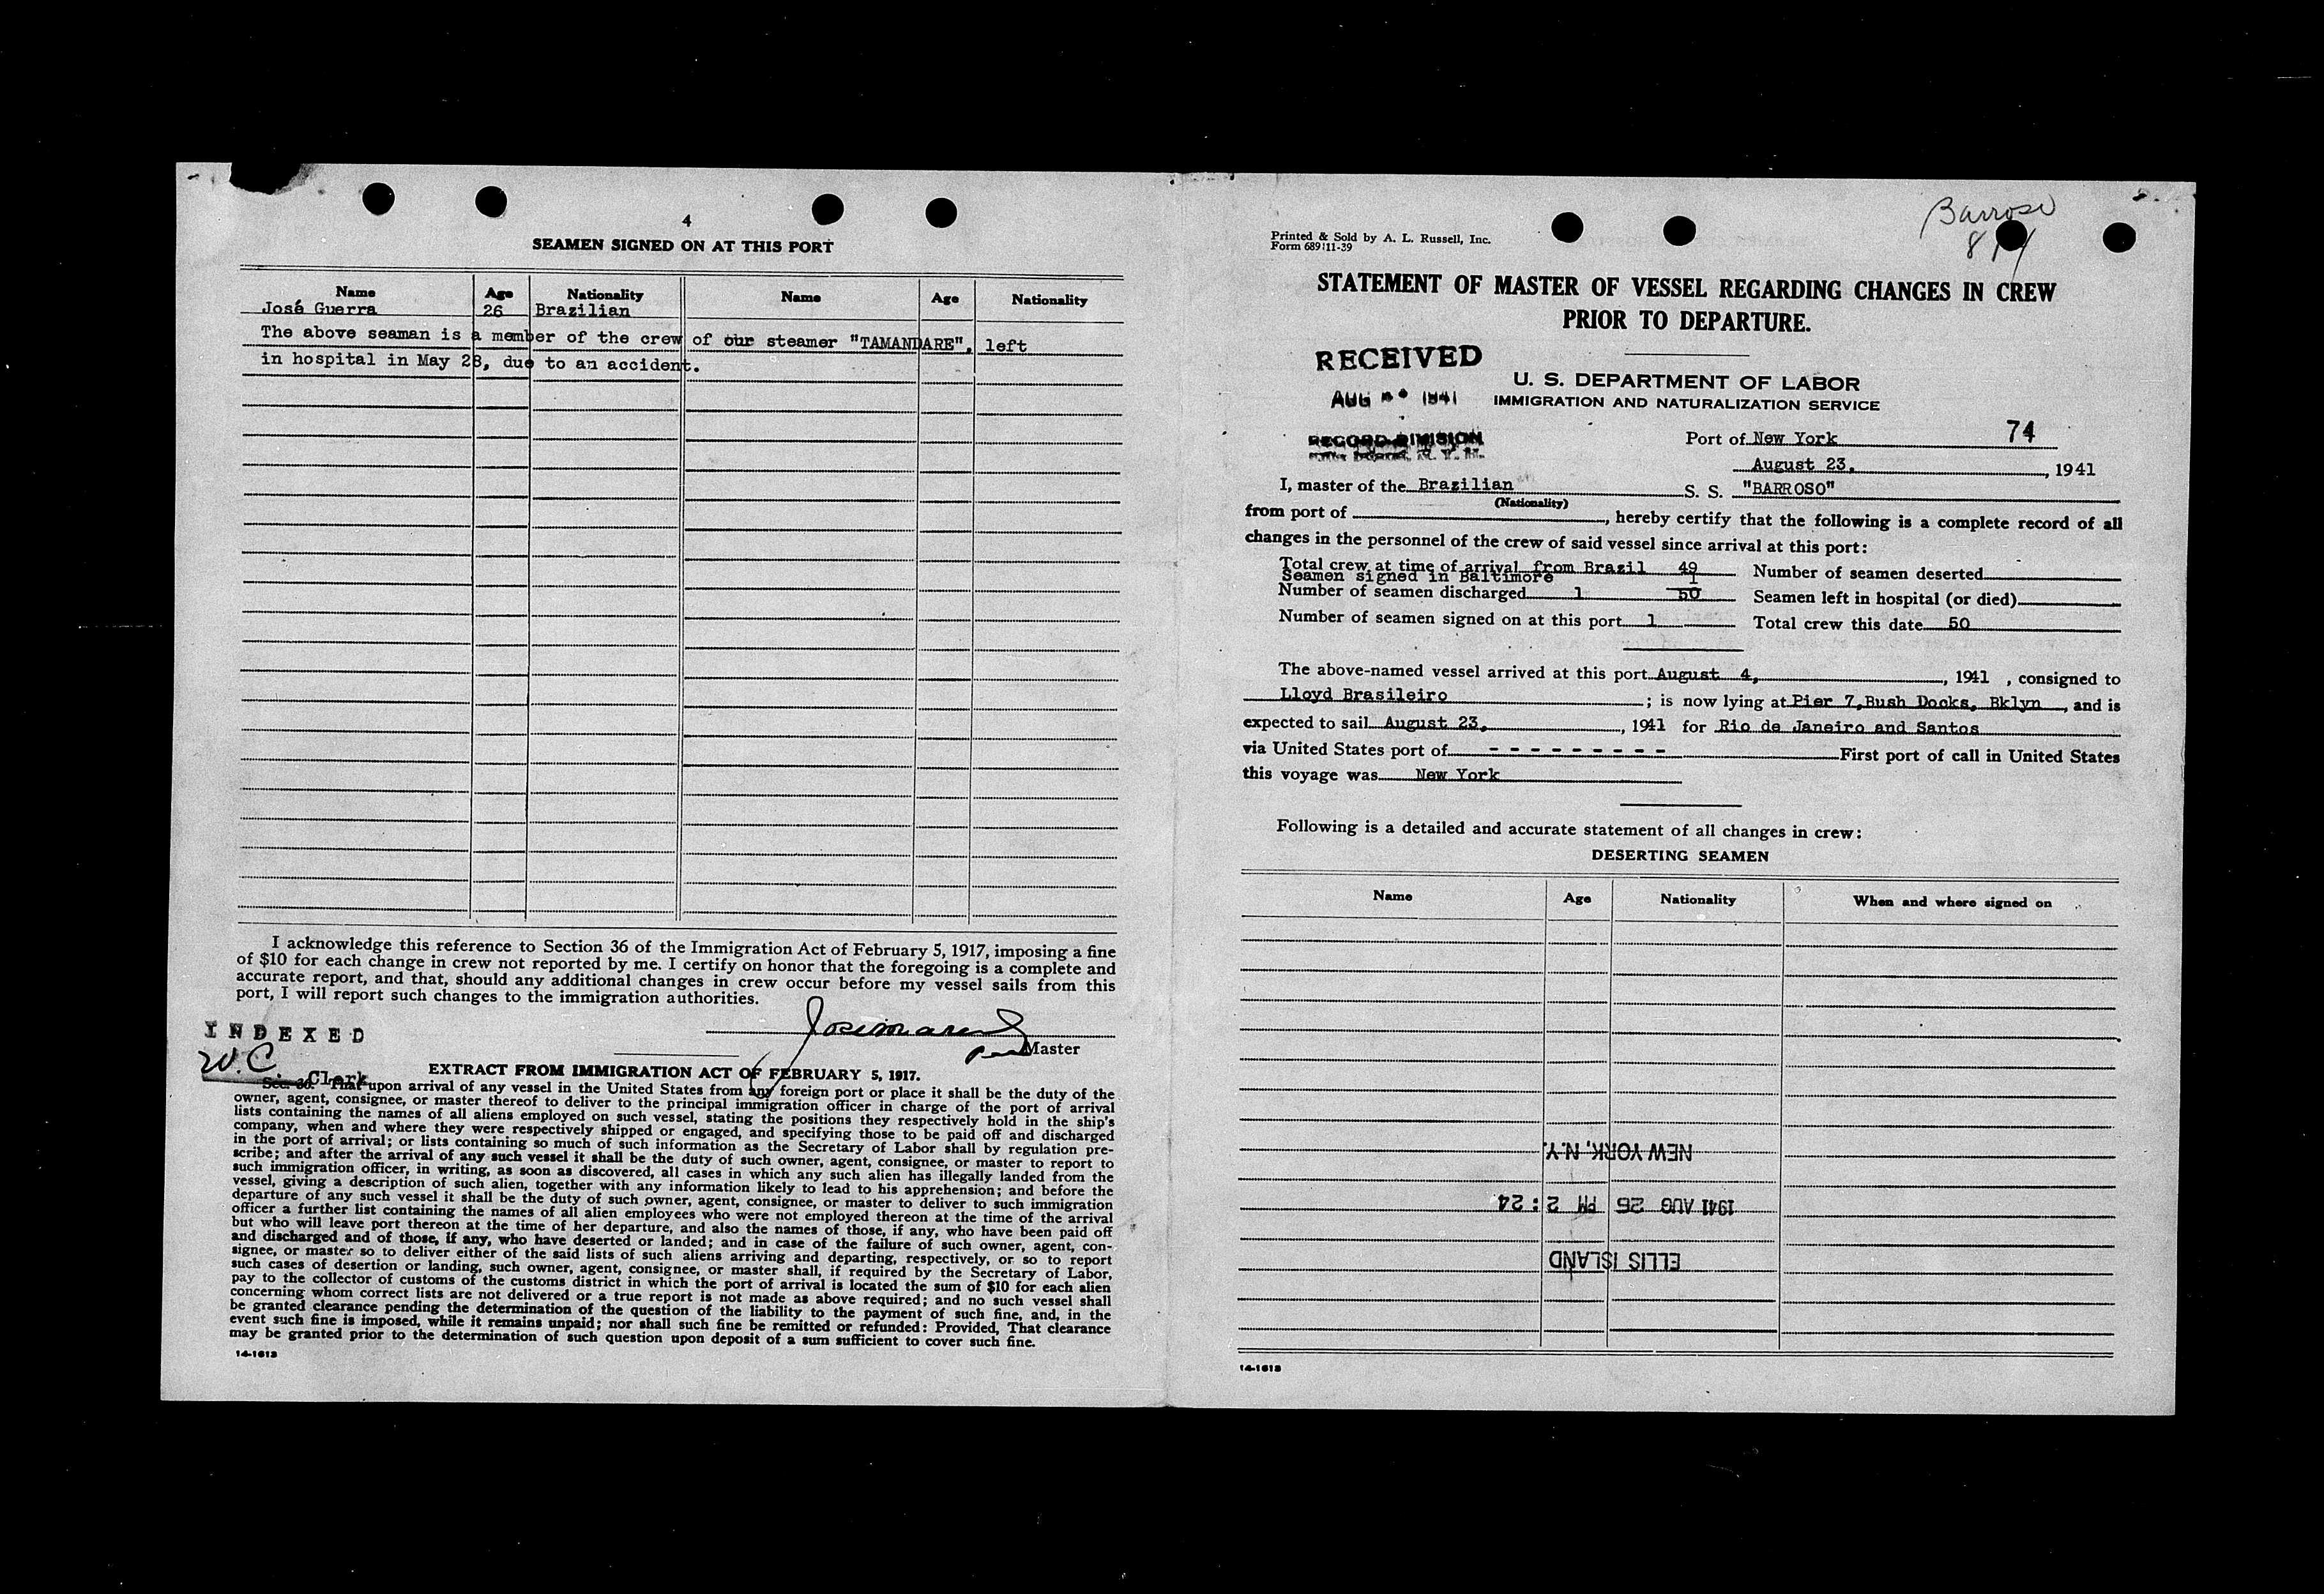 4
SEAMEN SIGNED ON AT THIS PORT
Name Age Nationality Name Age Nationality
José Guerra 26 Brazilian
The above seaman is a member of the crew of our steamer "TAMANDARE", left
in hospital in May 28, due to an accident.
I acknowledge this reference to Section 36 of the Immigration Act of February 5, 1917, imposing a fine
of $10 for each change in crew not reported by me. I certify on honor that the foregoing is a complete and
accurate report, and that, should any additional changes in crew occur before my vessel sails from this
port, I will report such changes to the immigration authorities.
INDEXED
Master
W.C
Clerk
EXTRACT FROM IMMIGRATION ACT OF FEBRUARY 5, 1917.
Sec. 36. That upon arrival of any vessel in the United States from any foreign port or place it shall be the duty of the
owner, agent, consignee, or master thereof to deliver to the principal immigration officer in charge of the port of arrival
lists containing the names of all aliens employed on such vessel, stating the positions they respectively hold in the ship's
company, when and where they were respectively shipped or engaged, and specifying those to be paid off and discharged
in the port of arrival; or lists containing so much of such information as the Secretary of Labor shall by regulation pre-
scribe; and after the arrival of any such vessel it shall be the duty of such owner, agent, consignee, or master to report to
such immigration officer, in writing, as soon as discovered, all cases in which any such alien has illegally landed from the
vessel, giving a description of such alien, together with any information likely to lead to his apprehension; and before the
departure of any such vessel it shall be the duty of such owner, agent, consignee, or master to deliver to such immigration
officer a further list containing the names of all alien employees who were not employed thereon at the time of the arrival
but who will leave port thereon at the time of her departure, and also the names of those, if any, who have been paid off
and discharged and of those, if any, who have deserted or landed; and in case of the failure of such owner, agent, con-
signee, or master so to deliver either of the said lists of such aliens arriving and departing, respectively, or so to report
such cases of desertion or landing, such owner, agent, consignee, or master shall, if required by the Secretary of Labor,
pay to the collector of customs of the customs district in which the port of arrival is located the sum of $10 for each alien
concerning whom correct lists are not delivered or a true report is not made as above required; and no such vessel shall
be granted clearance pending the determination of the question of the liability to the payment of such fine, and, in the
event such fine is imposed, while it remains unpaid; nor shall such fine be remitted or refunded: Provided, That clearance
may be granted prior to the determination of such question upon deposit of a sum sufficient to cover such fine.
14-1613
Barroso
Printed & Sold by A. L. Russell, Inc.
Form 689:11-39
STATEMENT OF MASTER OF VESSEL REGARDING CHANGES IN CREW
PRIOR TO DEPARTURE.
RECEIVED
U. S. DEPARTMENT OF LABOR
AUG 1941
IMMIGRATION AND NATURALIZATION SERVICE
RECORD DIVISION
Port of New York 74
August 23, , 1941
I, master of the Brazilian S. S. "BARROSO"
(Nationality)
from port of , hereby certify that the following is a complete record of all
changes in the personnel of the crew of said vessel since arrival at this port:
Total crew at time of arrival from Brazil 49 Number of seamen deserted
Seamen signed in Baltimore 1
Number of seamen discharged 1 50 Seamen left in hospital (or died)
Number of seamen signed on at this port 1 Total crew this date 50
The above-named vessel arrived at this port August 4, , 1941 , consigned to
Lloyd Brasileiro ; is now lying at Pier 7, Bush Docks, Bklyn , and is
expected to sail August 23, , 1941 for Rio de Janeiro and Santos
via United States port of - - - - - - - - - First port of call in United States
this voyage was New York
Following is a detailed and accurate statement of all changes in crew:
DESERTING SEAMEN
Name Age Nationality When and where signed on
NEW YORK, N.Y.
1941 AUG 26 PM 2:24
ELLIS ISLAND
14-1613